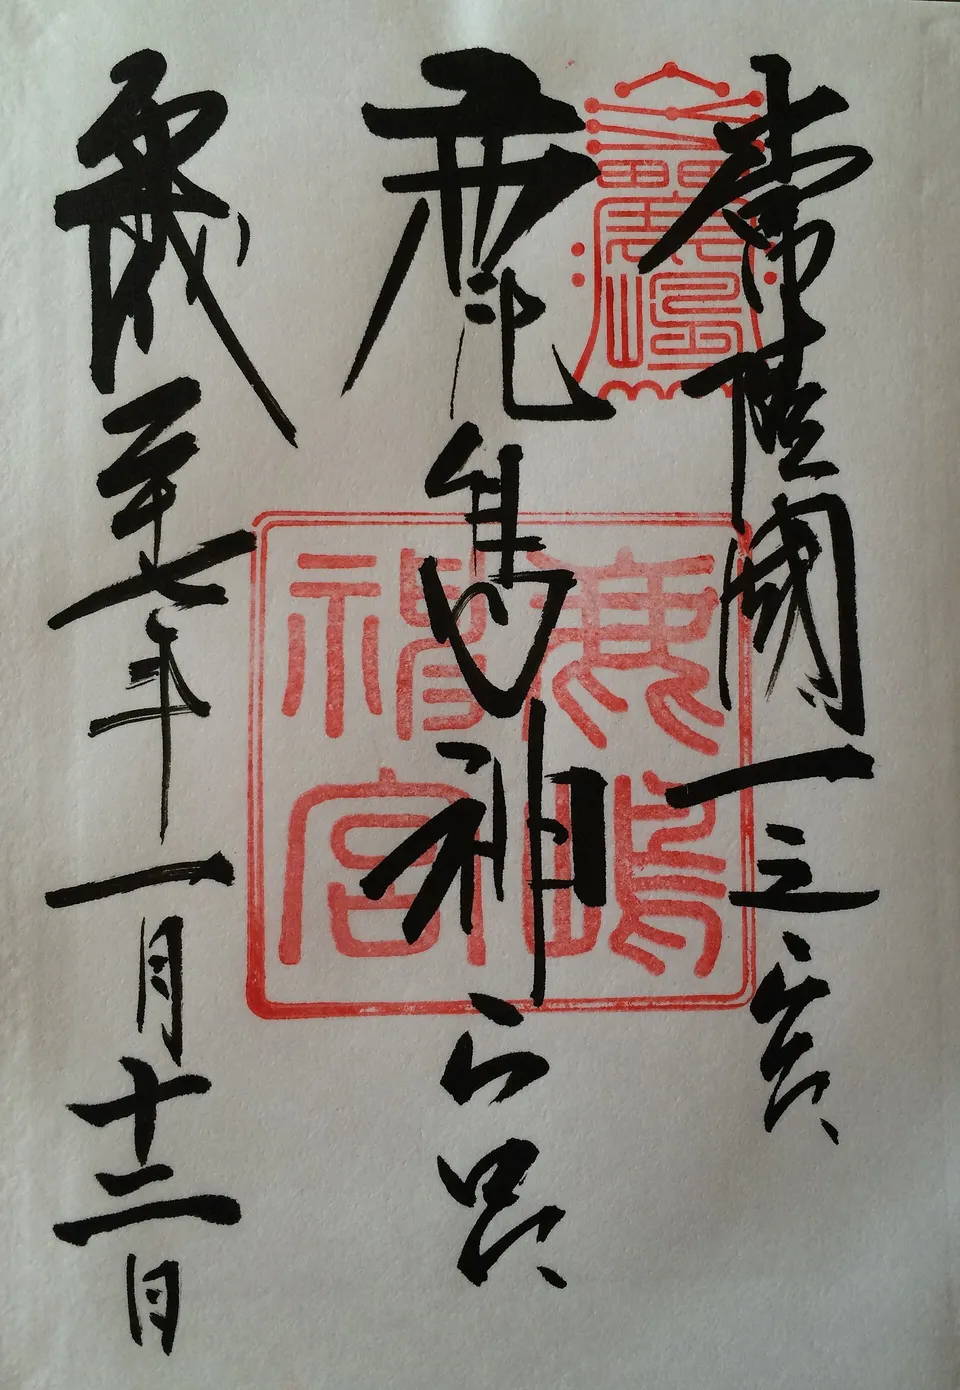 常陸國一之宮
鹿島神宮
平成二十七年一月十二日
鹿嶋
神宮